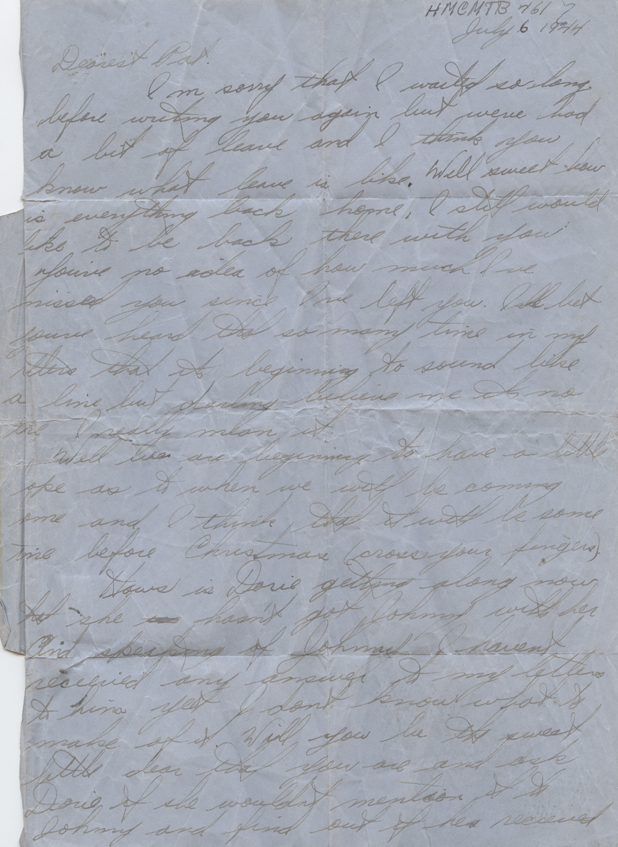 HMCMTB 461
July 6 1944
Dearest Pat.
I'm sorry that I waited so long
before writing you again but weve had
a bit of leave and I think you
know what leave is like. Well sweet how
is everything back home, I still would
like to be back there with you
you've no idea of how much I've
missed you since I've left you. I'll bet
youve heard that so many time in my
letters that its beginning to sound like
a line, but darling believe me its no
I really mean it.
Well we are beginning to have a little
ope as to when we will be coming
ome and I think that it will be some
me before Christmas (cross your fingers)
Hows is Dorie getting along now
that she hasn't got Johnny with her
And speaking of Johnny I havent
received any answer to my letters
to him yet I dont know what to
make of it. Will you be the sweet
little dear that you are and ask
Dorie if she wouldn't mention it to
Johnny and find out if hes received